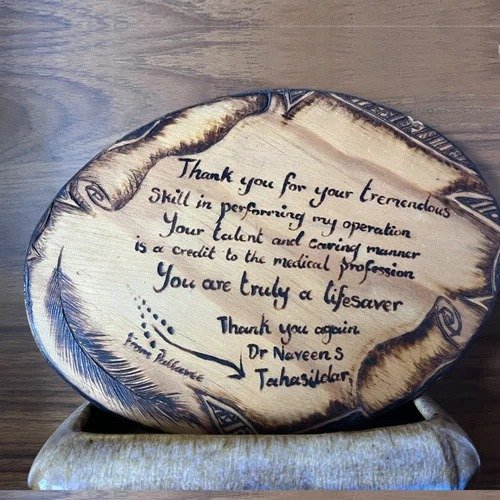 Thank you for your tremendous
Skill in performing my operation
Your talent and caring manner
is a credit to the medical profession
You are truly a lifesaver
Thank you again
Dr Naveen S
Tahasildar
from Pallavie